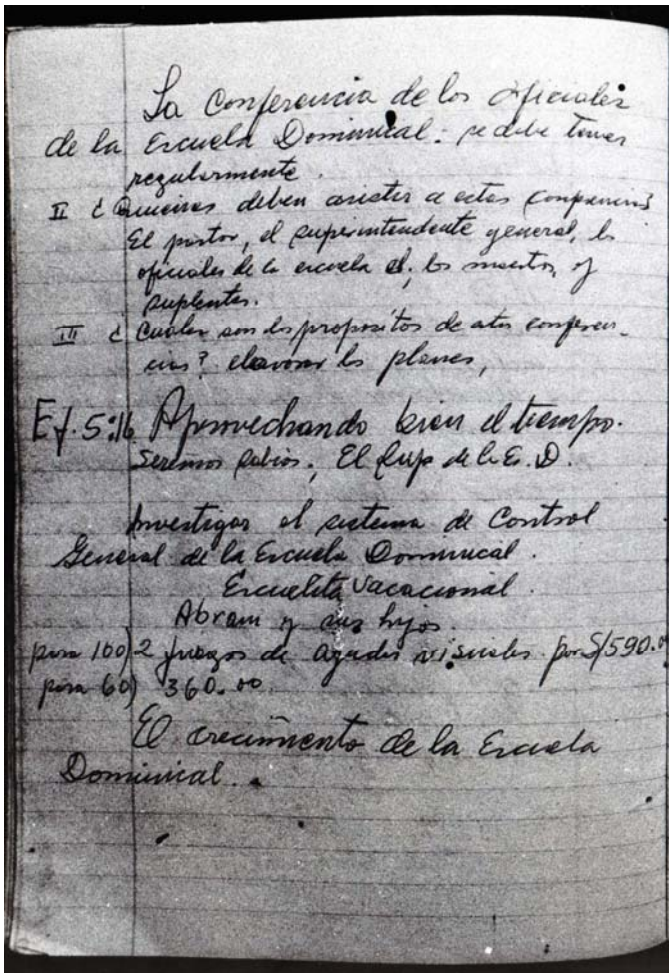 La Conferencia de los oficiales
de la Escuela Dominical: se debe tener
regularmente.
II ¿Quienes deben asistir a estas
El pastor, el superintendente general, ls
oficiales de la escuela d, los maestros, y
suplentes.
III ¿Cuales son los propositos de estas conferen-
cias? elavorar ls planes,
Ef. 5:16 Aprovechando bien el tiempo.
Seremos sabios; El Sup de la Es. D.
Investigar el sistema de Control
General de la Escuela Dominical.
Escuelita Vacacional.
Abram y sus hijos.
para 100) 2 juegos de ayudas visuales por S/590.00
para 60) 360.00
El crecimiento de la Escuela
Dominical.